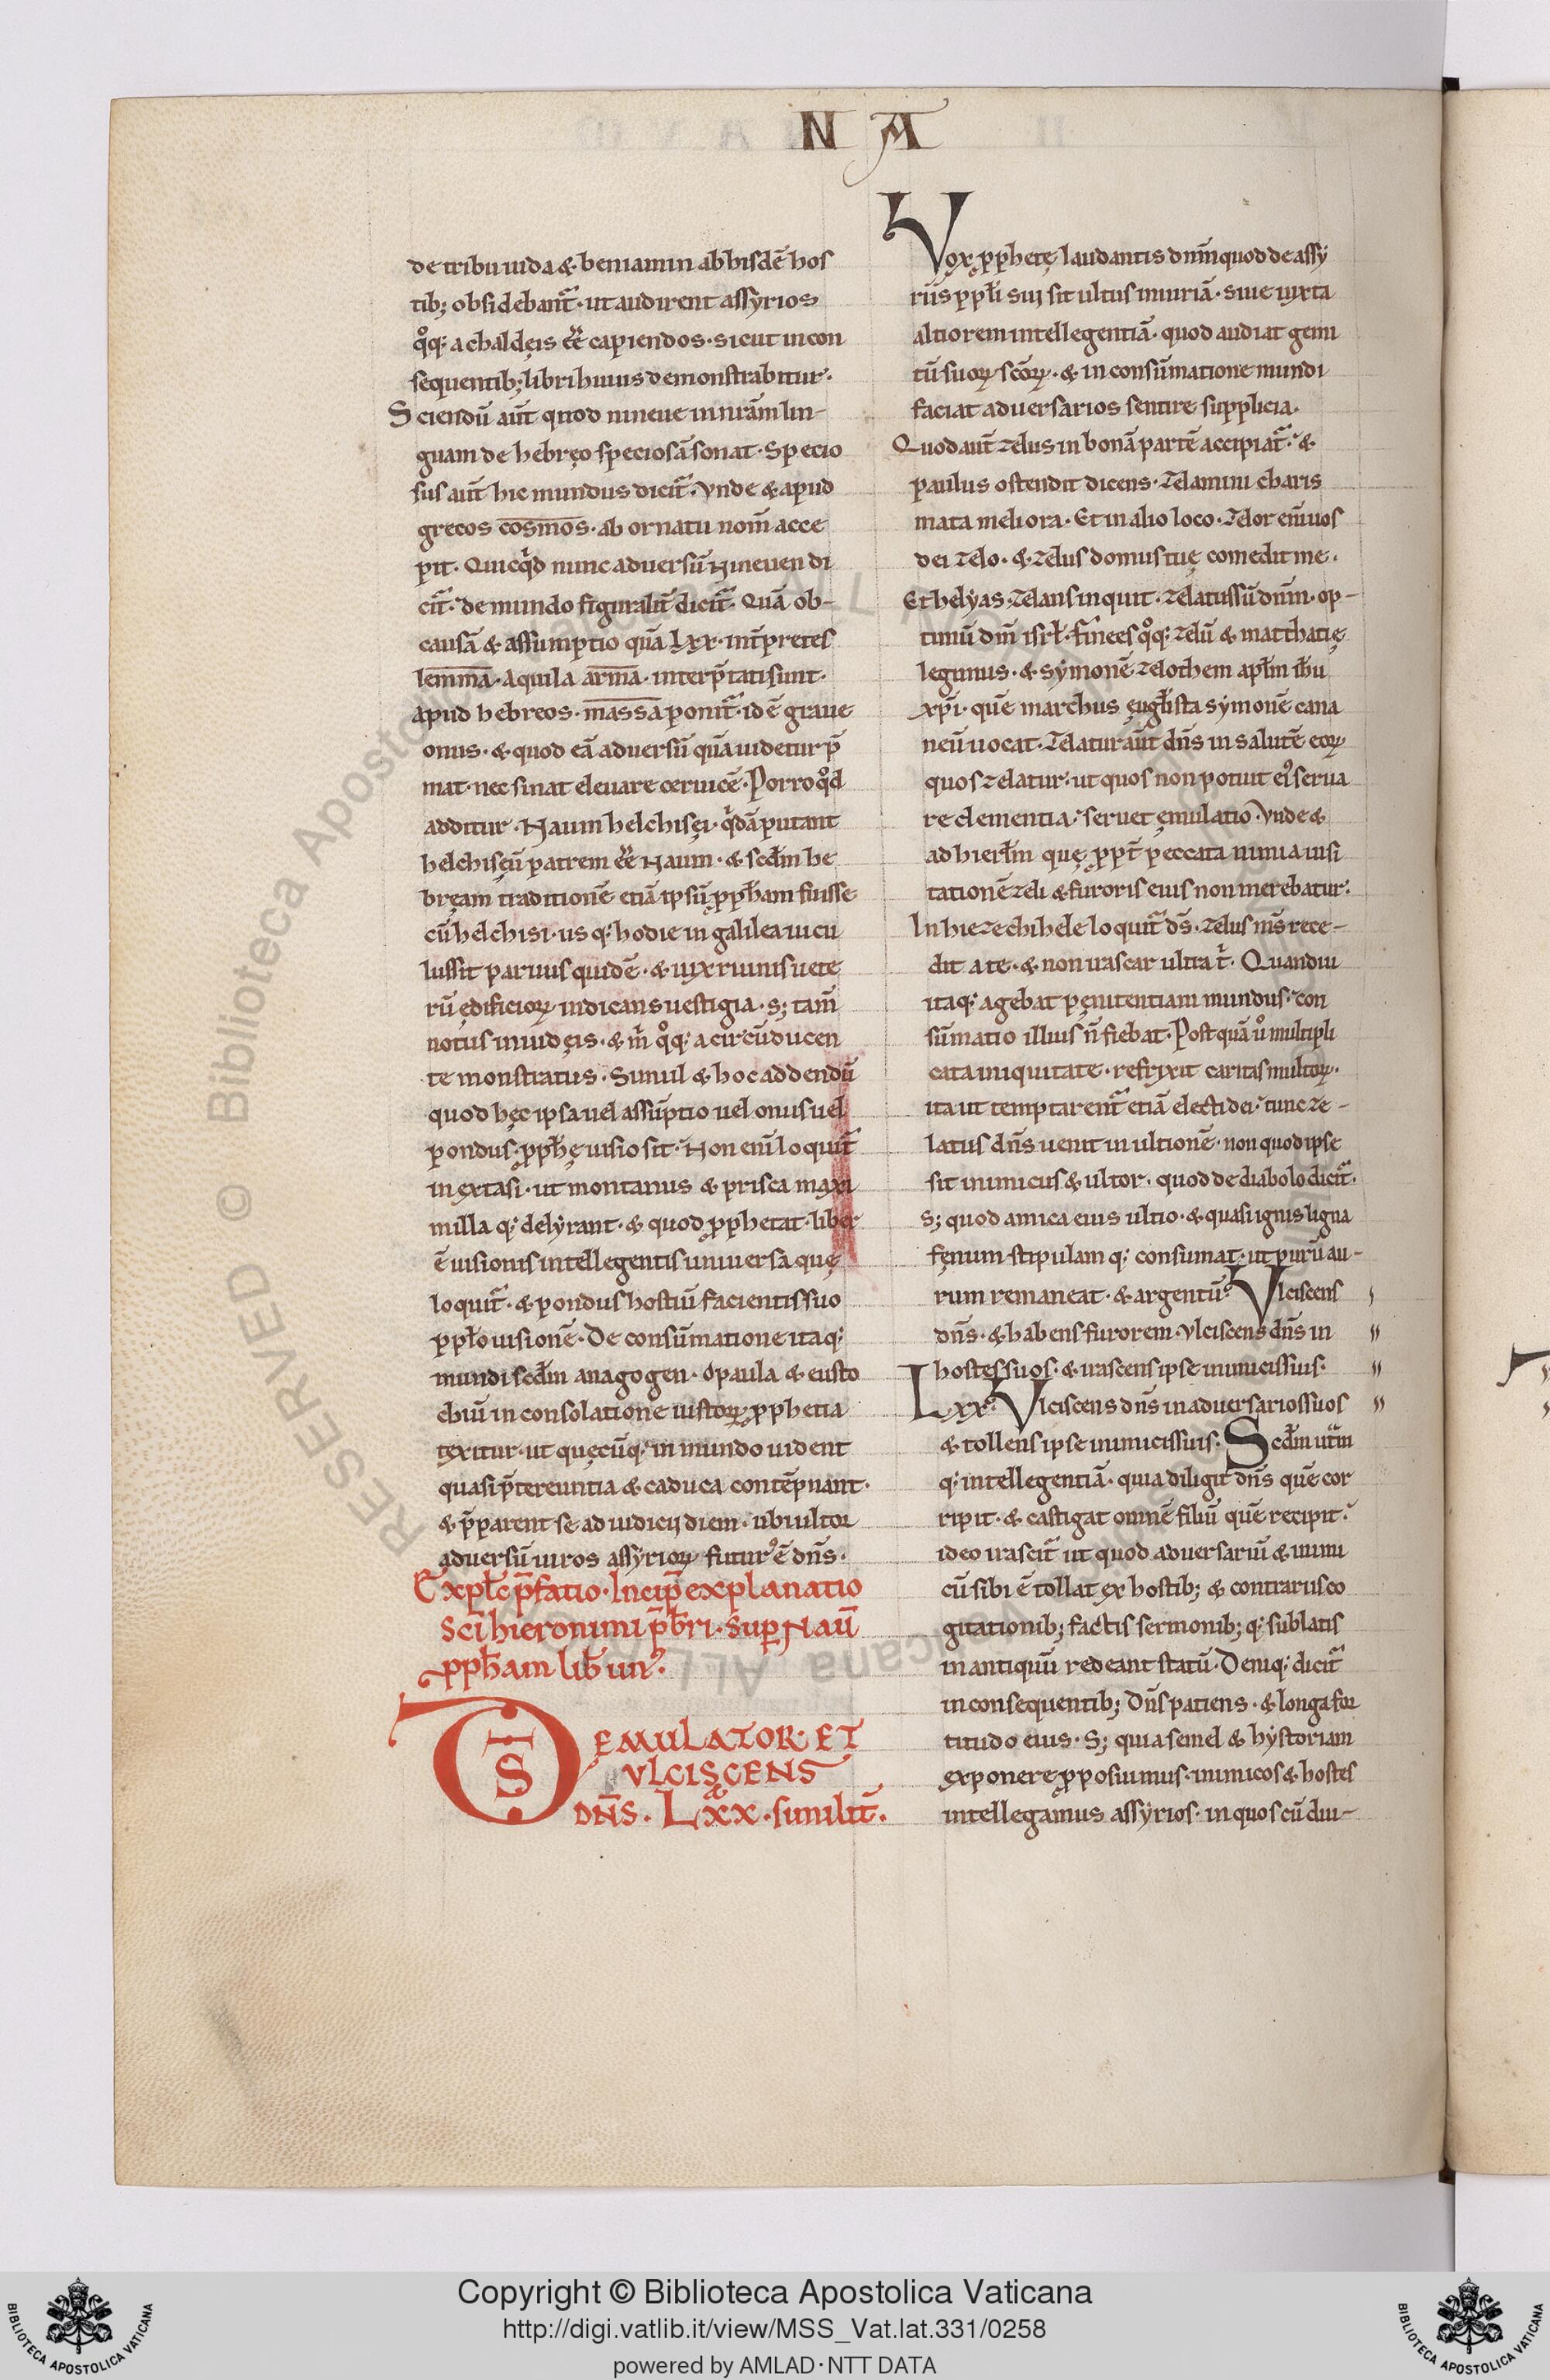 N A
de tribu iuda & beniamin ab hisdē hos
tib; obsidebant᷑· ut audirent assyrios
qͦq; a chaldęis eē᷑ capiendos· sicut in con
sequentib; libri huius demonstrabitur·
Sciendū aūt quod nineue in nrām lin-
guam de hebręo speciosā sonat· Specio
sus aūt hic mundus dicit᷑· Vnde & apud
grecos cosmos· ab ornatu nom̄ acce
pit· Quicq̇d nunc adversū Nineuen di
cit᷑· de mundo figuralit̄ dicit᷑· Quā ob-
causā & assumptio quā Lxx· int̄pretes
lemma· Aquila arma· interp̄tati sunt·
Apud hebreos· massa ponit᷑· id ē graue
onus· & quod eā adversū quā uidetur p̄
mat· nec sinat eleuare ceruicē· Porro qͦd
additur· Naum helchisęi· q̇dā putant
helchisęū patrem eē᷑ Naum· & scđm he
bręam traditionē etiā ipsū ꝓpħam fuisse
cū helchisi· usq; hodie in galilea uicu
lus sit paruus quidē· & uix ruinis uete
rū ędificioꝝ indicans uestigia· s; tam̄
notus iuudęis· & m̄ qͦq; a circūducen
te monstratus· Simul & hoc addendū
quod hęc ipsa uel assūptio uel onus uel
pondus· ꝓpħę uisio sit· Non eni᷑ loquit᷑
in extasi· ut montanus & prisca maxi
milla q; delyrant· & quod ꝓphetat· liber
ē uisionis intellegentis universa quę
loquit᷑· & pondus hostiū facientis suo
ppłouisionē· De consūmatione itaq;
mundi scđm anagogen· o paula & eusto
chiū in consolatione iustoꝝ ꝓphetia
texitur· ut quęcūq; in mundo uident
quasi p̄tereuntia & caduca contēpnant·
& p̄parent se ad iudicij diem· ubi ultor
adversū uiros assyrioꝝ futurꝰ ē dn̄s·
Expłc p̄fatio· Incip̄ explanatio
Sc̄i hieronimi p̄bri· Sup Naū
ꝓpħam lib̄ unꝰ·
DS ĘMULATOR· ET
VLCISCENS
DN̄S· Lxx· similit̄·
Vox ꝓphetę laudantis dnm̄ quod de assy
riis ppłi sui sit ultus iniuriā· siue iuxta
altiorem intellegentiā· quod audiat gemi
tū suoꝝ scōꝝ· & in consūmatione mundi
faciat adversarios sentire supplicia·
Quod aūt zelus in bonā partē accipiat᷑· &
paulus ostendit dicens· Zelamini charis
mata meliora· Et in alio loco· Zelor enī uos
dei zelo· & zelus domus tuę comedit me·
Et helyas· Zelans inquit· zelatus sū dnm̄· op-
timū dm̄ isrł· finees qͦq; zelū & matthatię
legimus· & symonē zelothem apłm ihu
xpi᷑· quē marchus ęuglīsta symonē cana
neū uocat· Zelatur aūt dn̄s in salutē eoꝝ
quos zelatur· ut quos non potuit eiꝰ serua
re clementia· seruet ęmulatio· Vnde &
ad hierłm quę ꝓpt̄ peccata nimia uisi
tationē zeli & furoris eius non merebatur·
In hiezechihele loquit᷑ ds̄· Zelus ms̄ rece-
dit a te· & non irascar ultra t̓· Quandiu
itaq; agebat pęnitentiam mundus· con
sūmatio illius n̄ fiebat· Postquā uͦ multipli
cata iniquitate· refrixit caritas multoꝝ·
ita ut temptarent᷑ etiā electi dei· tunc ze-
latus dn̄s uenit in ultionē· non quod ipse
sit inimicus & ultor· quod de diabolo dicit᷑·
S; quod amica eius ultio· & quasi ignis ligna
fęnum stipulamq; consumat· ut purū au-
rum remaneat· & argentū· Vlciscens
dn̄s· & habens furorem· ulciscens dn̄s in
hostes suos· & irascens ipse inimicis suis·
Lxx· Vlciscens dn̄s in adversarios suos
& tollens ipse inimicis suis· Scđm utrām
q; intellegentiā· quia diligit dn̄s quē cor
ripit· & castigat omnē filiū quē recipit·
ideo irascit᷑ ut quod adversariū & inimi
cū sibi ē tollat ex hostib; & contrariis co
gitationib; factis sermonib;q; sublatis
in antiquū redeant statū· Deniq; dicit᷑
in consequentib; Dn̄s patiens· & longa for
titudo eius· S; quia semel & hystoriam
exponere ꝓposuimus· inimicos & hostes
intellegamus assyrios· in quos cū diui-
RESERVED © Biblioteca Apostolica Vaticana ALL
Copyright © Biblioteca Apostolica Vaticana
http://digi.vatlib.it/view/MSS_Vat.lat.331/0258
powered by AMLAD·NTT DATA
BIBLIOTECA APOSTOLICA VATICANA
BIBLIOTECA APOSTOLICA VATICANA